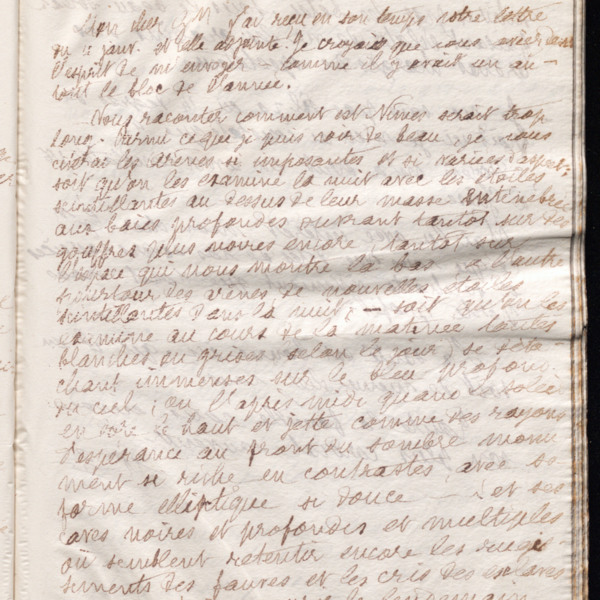 Mon cher J.M. J'ai reçu en son temps votre lettre
du 2 janv. et elle adjointe. Je croyais que vous aviez eu
l'esprit de m'envoyer – comme il y avait un an –
tout le bloc de l'année.
Vous raconter comment est Nîmes serait trop
long. Parmi ce que je puis voir de beau, je vous
citerai les Arènes si imposantes et si variées d'aspect:
soit qu'on les examine la nuit avec les étoiles
scintillantes au dessus de leur masse enténébrée
aux baies profondes ouvrant tantôt sur des
gouffres plus noires encore, tantôt sur
l'espace qui nous montre là bas à l'autre
pourtour des arènes de nouvelles étoiles
scintillantes dans la nuit; – soit qu'on les
examine au cours de la matinée toutes
blanches ou grises selon le jour, se déta
chant immenses sur le bleu profond
du ciel; ou l'après midi quand le soleil
en dore le haut et jette comme des rayons
d'espérance au front du sombre monu
ment si riche en contrastes, avec sa
forme elliptique si douce – et ses
caves noires et profondes et multiples
où semblent retentir encore les rugis
sements des fauves et les cris des esclaves